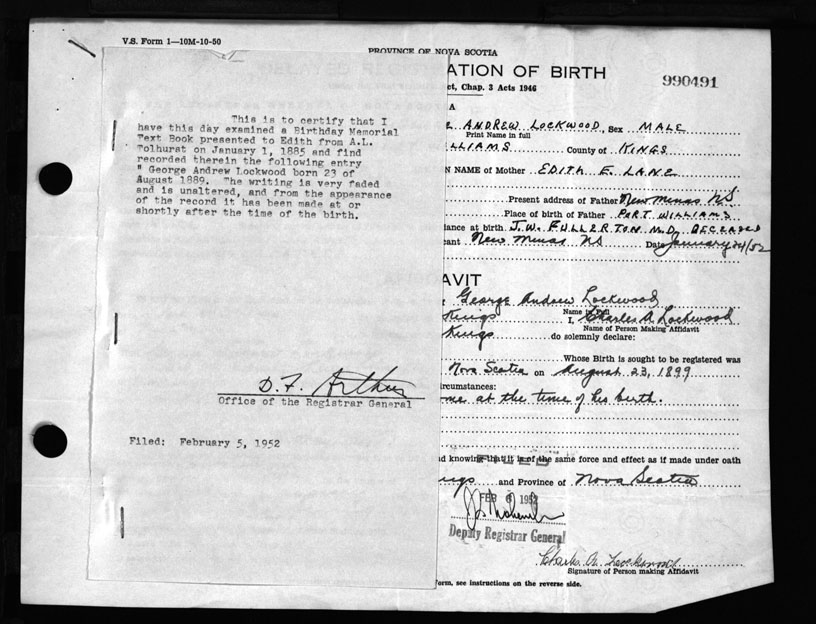 V.S. Form 1—10M-10-50
PROVINCE OF NOVA SCOTIA
This is to certify that I
have this day examined a Birthday Memorial
Text Book presented to Edith from A.L.
Tolhurst on January 1, 1885 and find
recorded therein the following entry
" George Andrew Lockwood born 23 of
August 1889. The writing is very faded
and is unaltered, and from the appearance
of the record it has been made at or
shortly after the time of the birth.
D. F. Arthur
Office of the Registrar General
Filed: February 5, 1952
ATION OF BIRTH
990491
ct, Chap. 3 Acts 1946
A
ANDREW LOCKWOOD, Sex MALE
Print Name in full
LLIAMS County of KINGS
N NAME of Mother EDITH E. LANE
Present address of Father New Minas NS
Place of birth of Father PORT WILLIAMS
ance at birth J.W. FULLERTON M.D. DECEASED
ant New Minas NS Date January 24/52
AVIT
George Andrew Lockwood
Name in Full
Kings I, Charles A Lockwood
Name of Person Making Affidavit
Kings do solemnly declare:
Whose Birth is sought to be registered was
Nova Scotia on August 23, 1899
ircumstances:
ome at the time of his birth.
d knowing that it is of the same force and effect as if made under oath
FILED
ngs and Province of Nova Scotia
FEB 6 1952
Deputy Registrar General
Charles A. Lockwood
Signature of Person making Affidavit
form, see instructions on the reverse side.